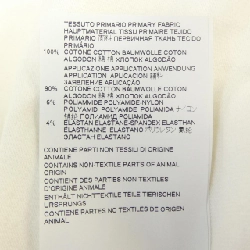 TESSUTO PRIMARIO PRIMARY FABRIC
HAUPTMATERIAL TISSU PRIMAIRE TEJIDO
PRIMARIO ПЕРВИЧНАЯ ТКАНЬ TECIDO
PRIMÁRIO
100% COTONE COTTON BAUMWOLLE COTON
ALGODÓN 綿 棉 ХЛОПОК ALGODÃO
APPLICAZIONE APPLICATION ANWENDUNG
APPLICATION APLICACIÓN
APLICAÇÃO
90% COTONE COTTON BAUMWOLLE COTON
ALGODÓN 綿 棉 ХЛОПОК ALGODÃO
6% POLIAMMIDE POLYAMIDE-NYLON
POLYAMID POLYAMIDE POLIAMIDA ナイロン
ПОЛИАМИД POLIAMIDA
4% ELASTAN ELASTANE-SPANDEX ELASTHAN
ELASTHANNE ELASTANO ポリウレタン
ELASTANO
CONTIENE PARTI NON TESSILI DI ORIGINE
ANIMALE
CONTAINS NON-TEXTILE PARTS OF ANIMAL
ORIGIN
CONTIENT DES PARTIES NON TEXTILES
D'ORIGINE ANIMALE
ENTHÄLT NICHTTEXTILE TEILE TIERISCHEN
URSPRUNGS
CONTIENE PARTES NO TEXTILES DE ORIGEN
ANIMAL